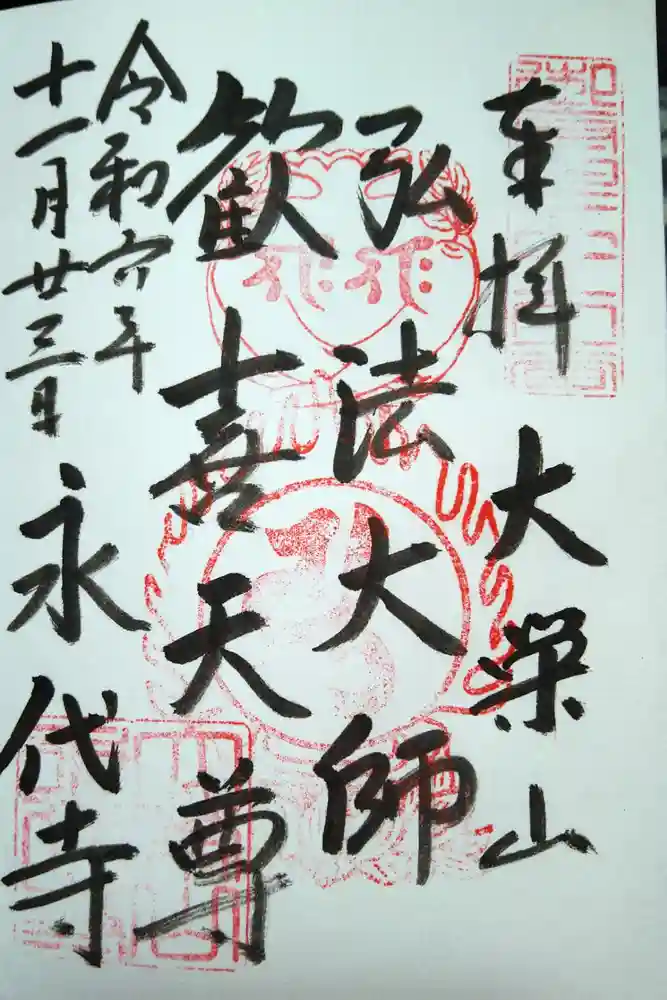 奉拝 大栄山
弘法大師
歓喜天尊
令和六年
十一月廿三日
永代寺